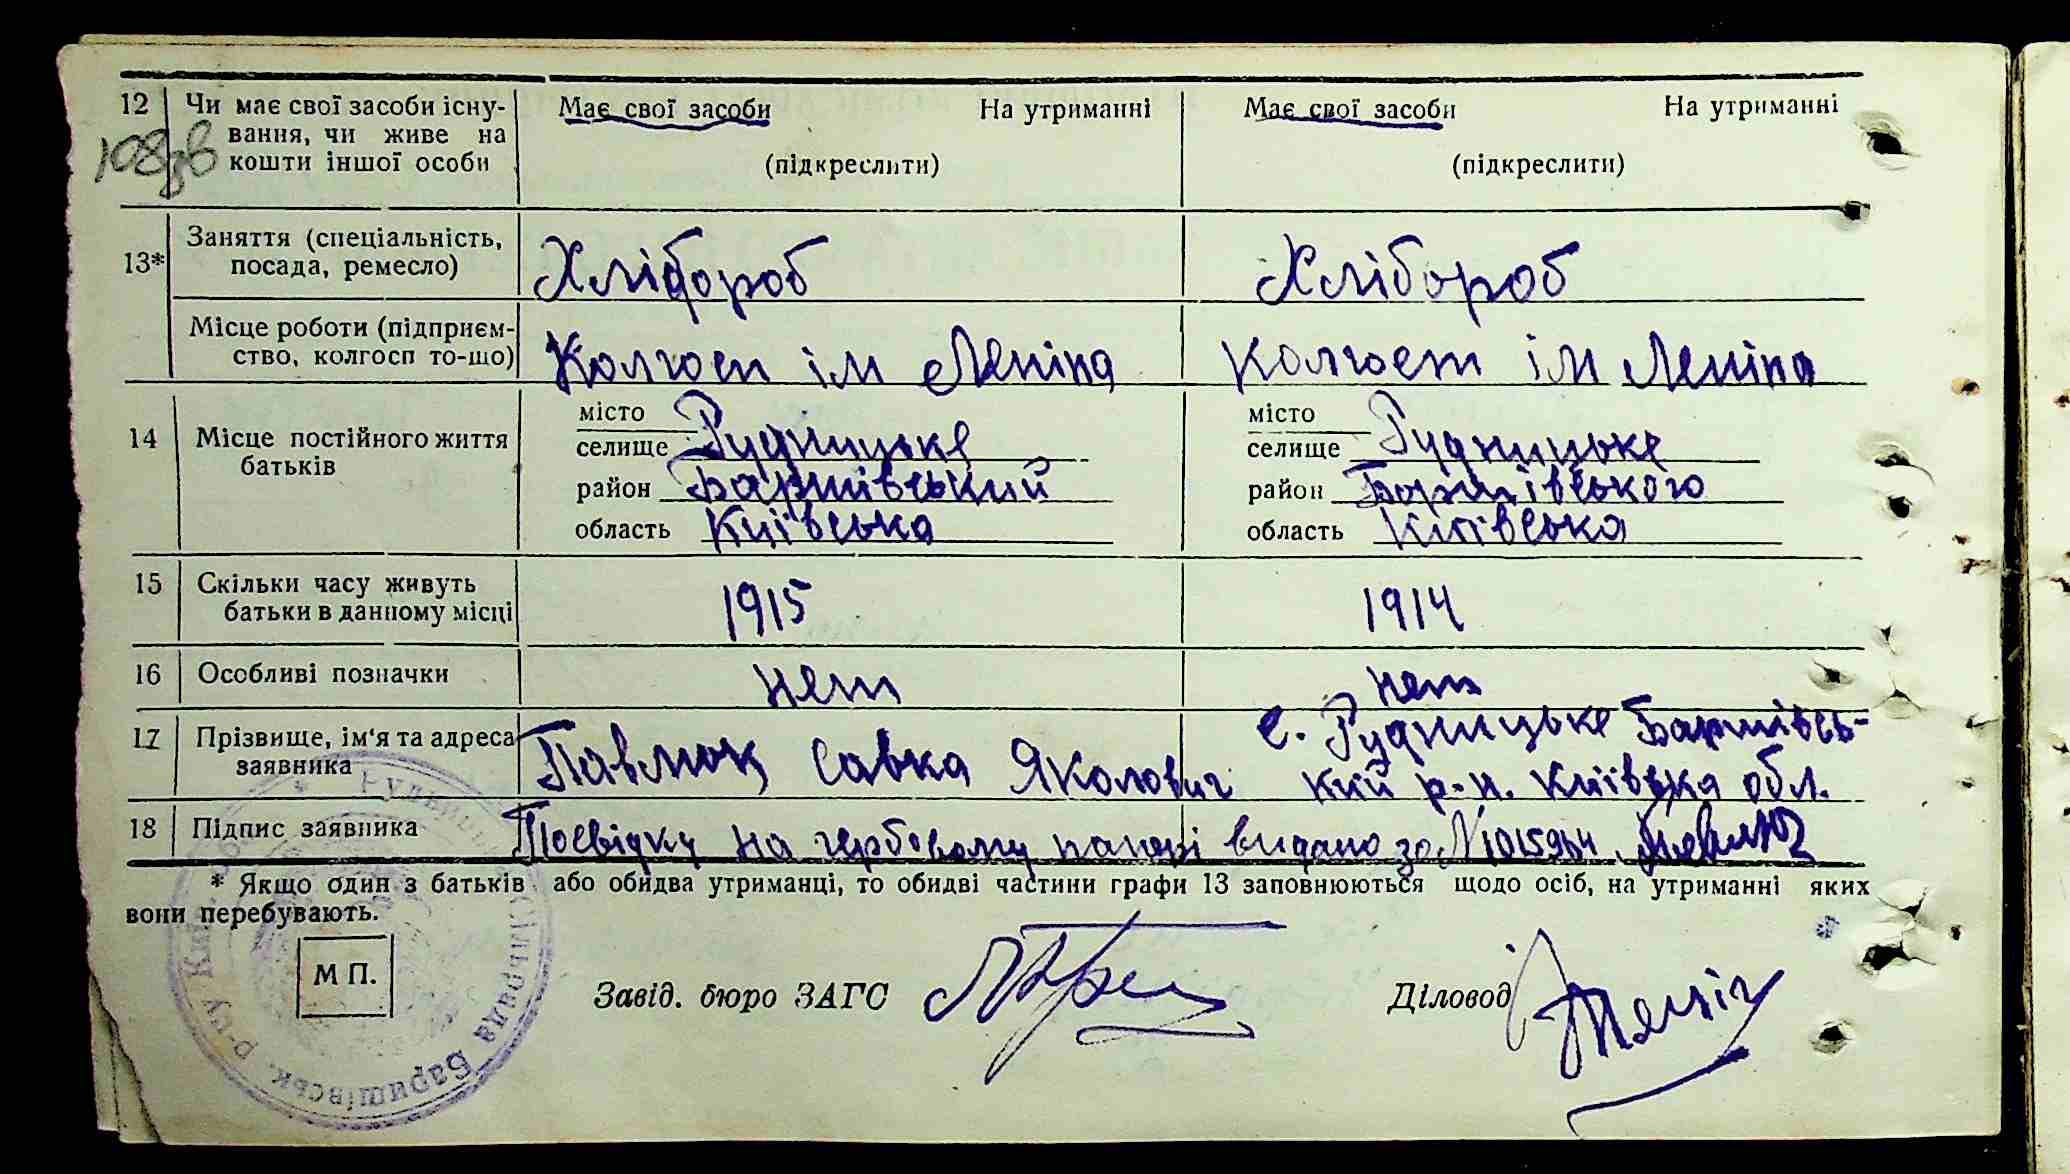 12 Чи має свої засоби існу- Має свої засоби На утриманні Має свої засоби На утриманні
вання, чи живе на
кошти іншої особи (підкреслити) (підкреслити)
108зв
Заняття (спеціальність,
13* посада, ремесло) Хлібороб Хлібороб
Місце роботи (підприєм-
ство, колгосп то-що) Колгосп ім Леніна Колгосп ім Леніна
місто місто
14 Місце постійного життя селище Рудницьке селище Рудницьке
батьків район Баришівський район Баришівського
область Київська область Київська
15 Скільки часу живуть
батьки в данному місці 1915 1914
16 Особливі позначки нет нет
17 Прізвище, ім'я та адреса с. Рудницьке Баришівсь-
заявника Павлюк Савка Якович кий р-н. Київська обл.
18 Підпис заявника Посвідку на гербовому папері видано за N 1015964 Павлюк
* Якщо один з батьків або обидва утриманці, то обидві частини графи 13 заповнюються щодо осіб, на утриманні яких
вони перебувають.
М П.
Завід. бюро ЗАГС Діловод
сільрада Баришівськ. р-ну